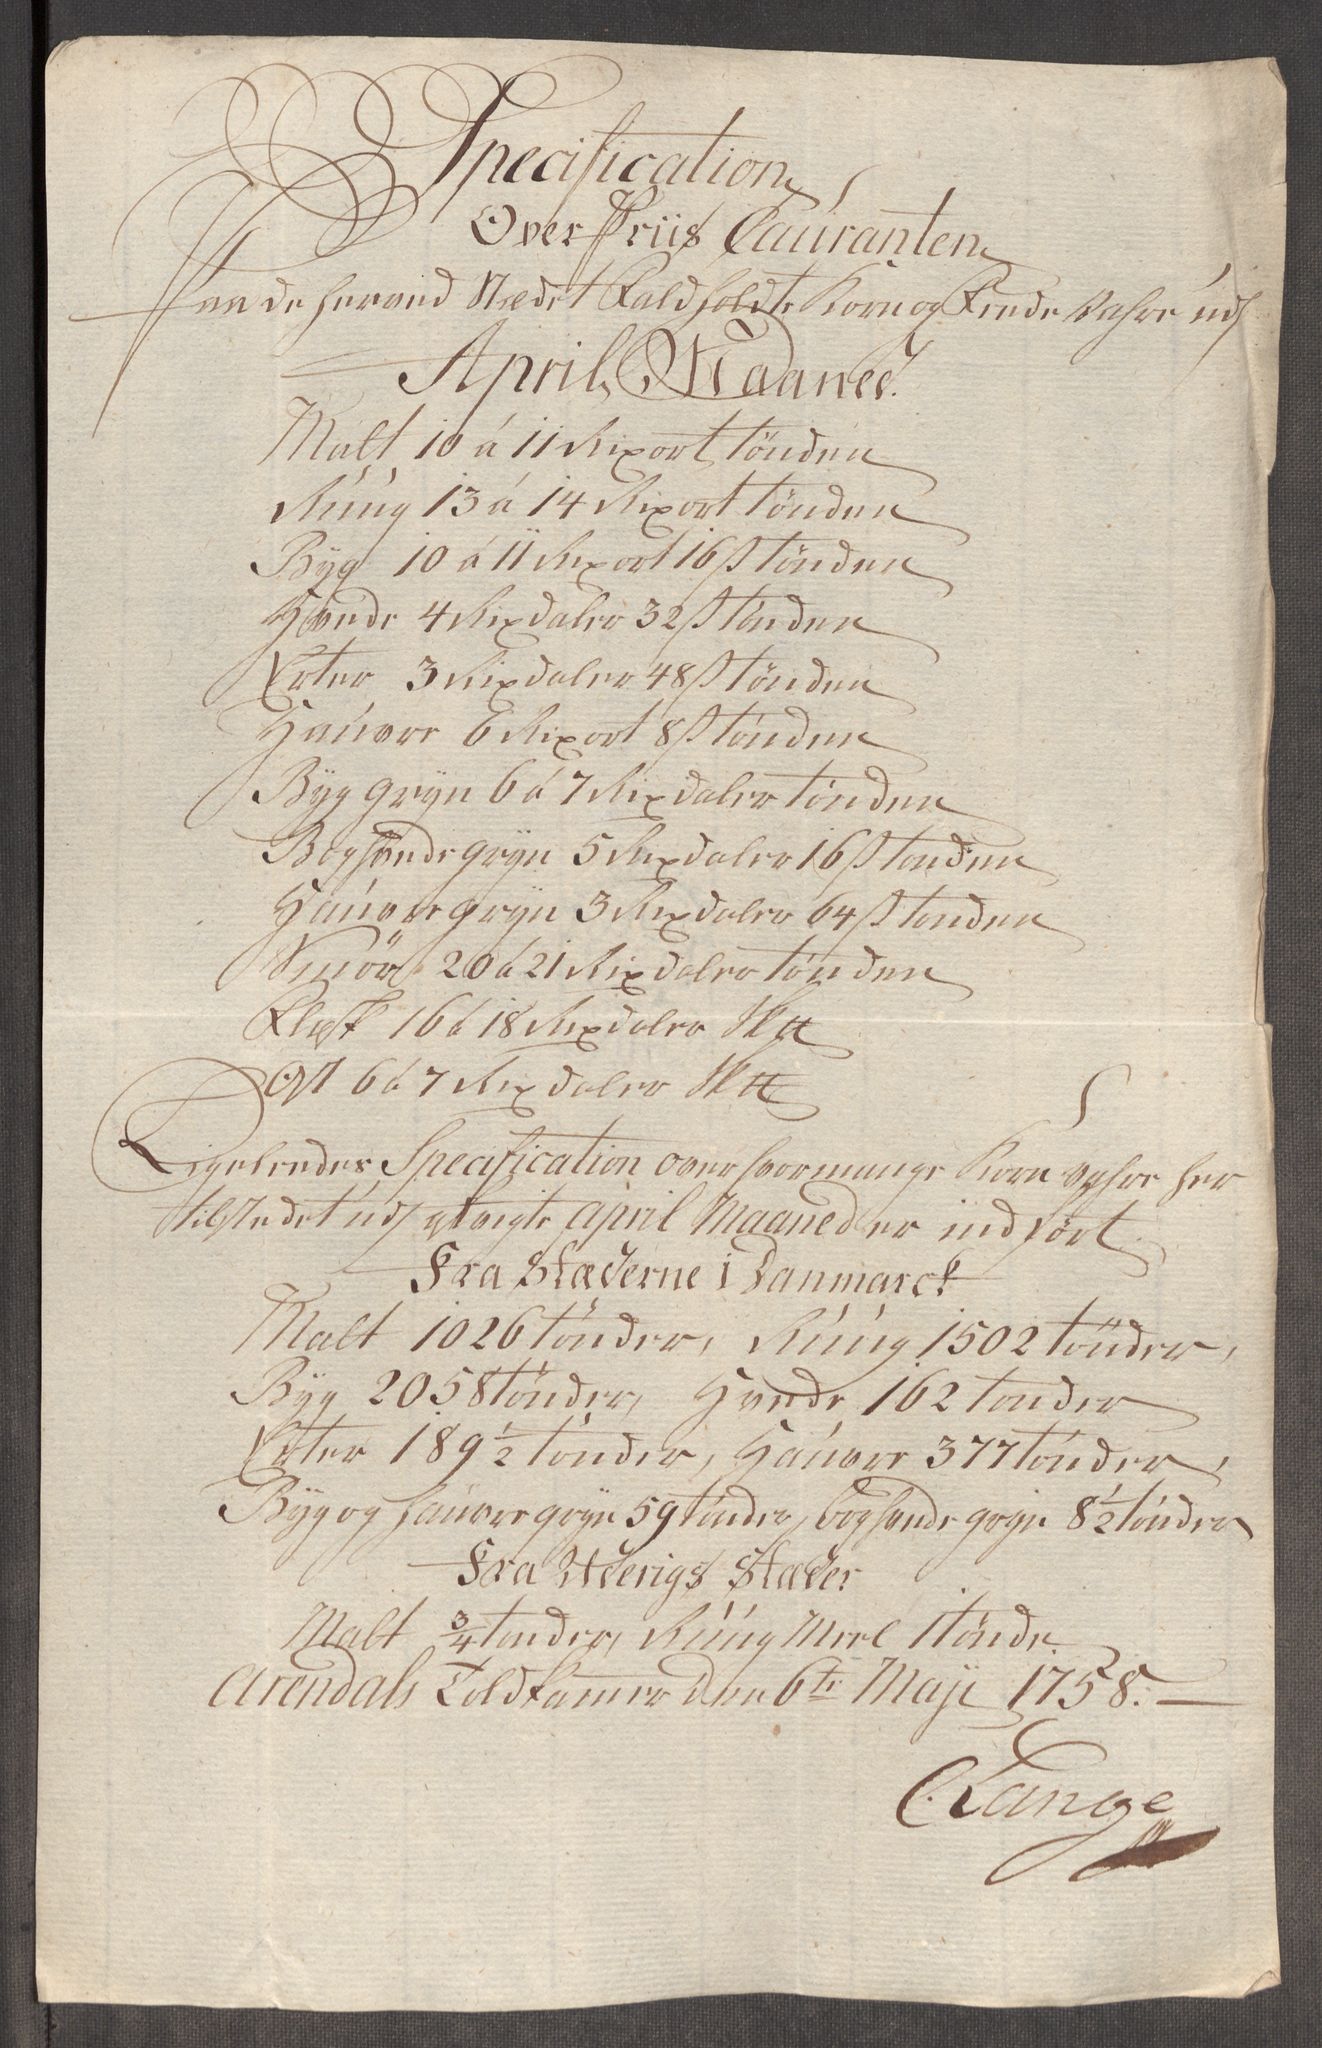 Specification
Over Priis Couranten
Paa de herved Stædet Faldholdte Korn og Feede Vahre udj
April Maaned.
Malt 10 á 11 Rixort tönden
Rúúg 13 á 14 Rixort tönden
Byg 10 á 11 Rixort 16 β tönden
Hvede 4 Rixdaler 32 β tönden
Erter 3 Rixdaler 48 β tönden
Haúvre 6 Rixort 8 β tönden
Byg gryn 6 á 7 Rixdaler tönden
Boghvede gryn 5 Rixdaler 16 β tönden
Haúvre gryn 3 Rixdaler 64 β tönden
Smör 20 á 21 Rixdaler tönden
Flesk 16 á 18 Rixdaler Sk℔
Ost 6 á 7 Rixdaler Sk℔
Ligeleedes Specification over hvormange Korn vahre her
til stedet udj april Maaned er indført
Fra Stæderne i Danmarck
Malt 1026 tönder, Rúúg 1502 tönder,
Byg 2058 tönder, Hvede 162 tönder
Erter 189 1/2 tönder, Haúvre 377 tönder,
Byg og haúvre gryn 59 tönder, boghvede gryn 8 1/2 tönder
Fra Uderigs Stæder
Malt 3/4 tönder, Rúúg Meel 1 tönde
Arendals Toldkamer den 6te Maji 1758.
C. Lange